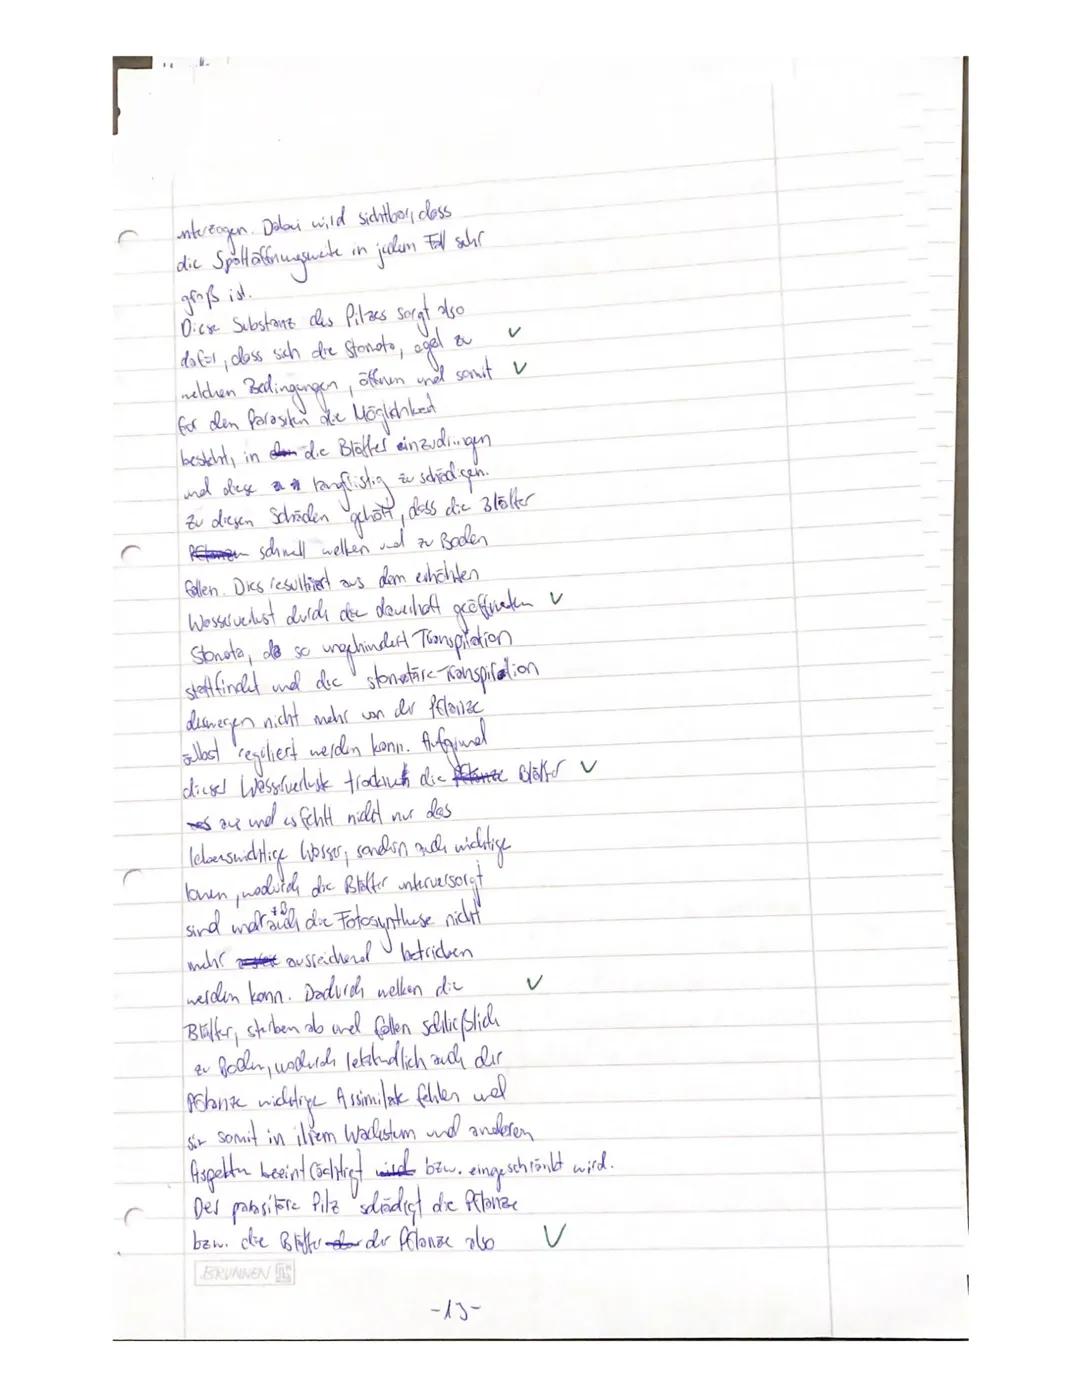 unterzogen. Dabei wird sichtbar, dass
die Spaltöffnungsweite in jedem Fall sehr
groß ist.
Diese Substanz des Pilzes sorgt also
dafür, dass sich die Stomata, egal zu
welchen Bedingungen, öffnen und somit
für den Parasiten die Möglichkeit
besteht, in die Blätter einzudringen
und diese langfristig zu schädigen.
Zu diesen Schäden gehört, dass die Blätter
schnell welken und zu Boden
fallen. Dies resultiert aus dem erhöhten
Wasserverlust durch die dauerhaft geöffneten
Stomata, da so ungehindert Transpiration
stattfindet und die stomatäre Transpiration
deswegen nicht mehr von der Pflanze
selbst reguliert werden kann. Aufgrund
dieses Wasserverlusts trocknen die Blätter
aus und es fehlt nicht nur das
lebenswichtige Wasser, sondern auch wichtige
Ionen, wodurch die Blätter unterversorgt
sind und z.B. auch die Fotosynthese nicht
mehr ausreichend betrieben
werden kann. Dadurch welken die
Blätter, sterben ab und fallen schließlich
zu Boden, wodurch letztendlich auch der
Pflanze wichtige Assimilate fehlen und
sie somit in ihrem Wachstum und anderen
Aspekten beeinträchtigt bzw. eingeschränkt wird.
Der parasitäre Pilz schädigt die Pflanze
bzw. die Blätter der Pflanze also
BRUNNEN
-13-